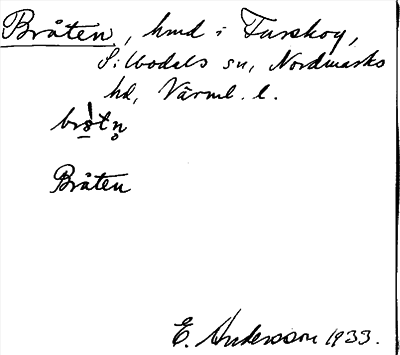 Bråten, hmd i Furskog,
Silbodals sn, Nordmarks
hd, Värml. l.
Bråten
E. Andersson 1933.